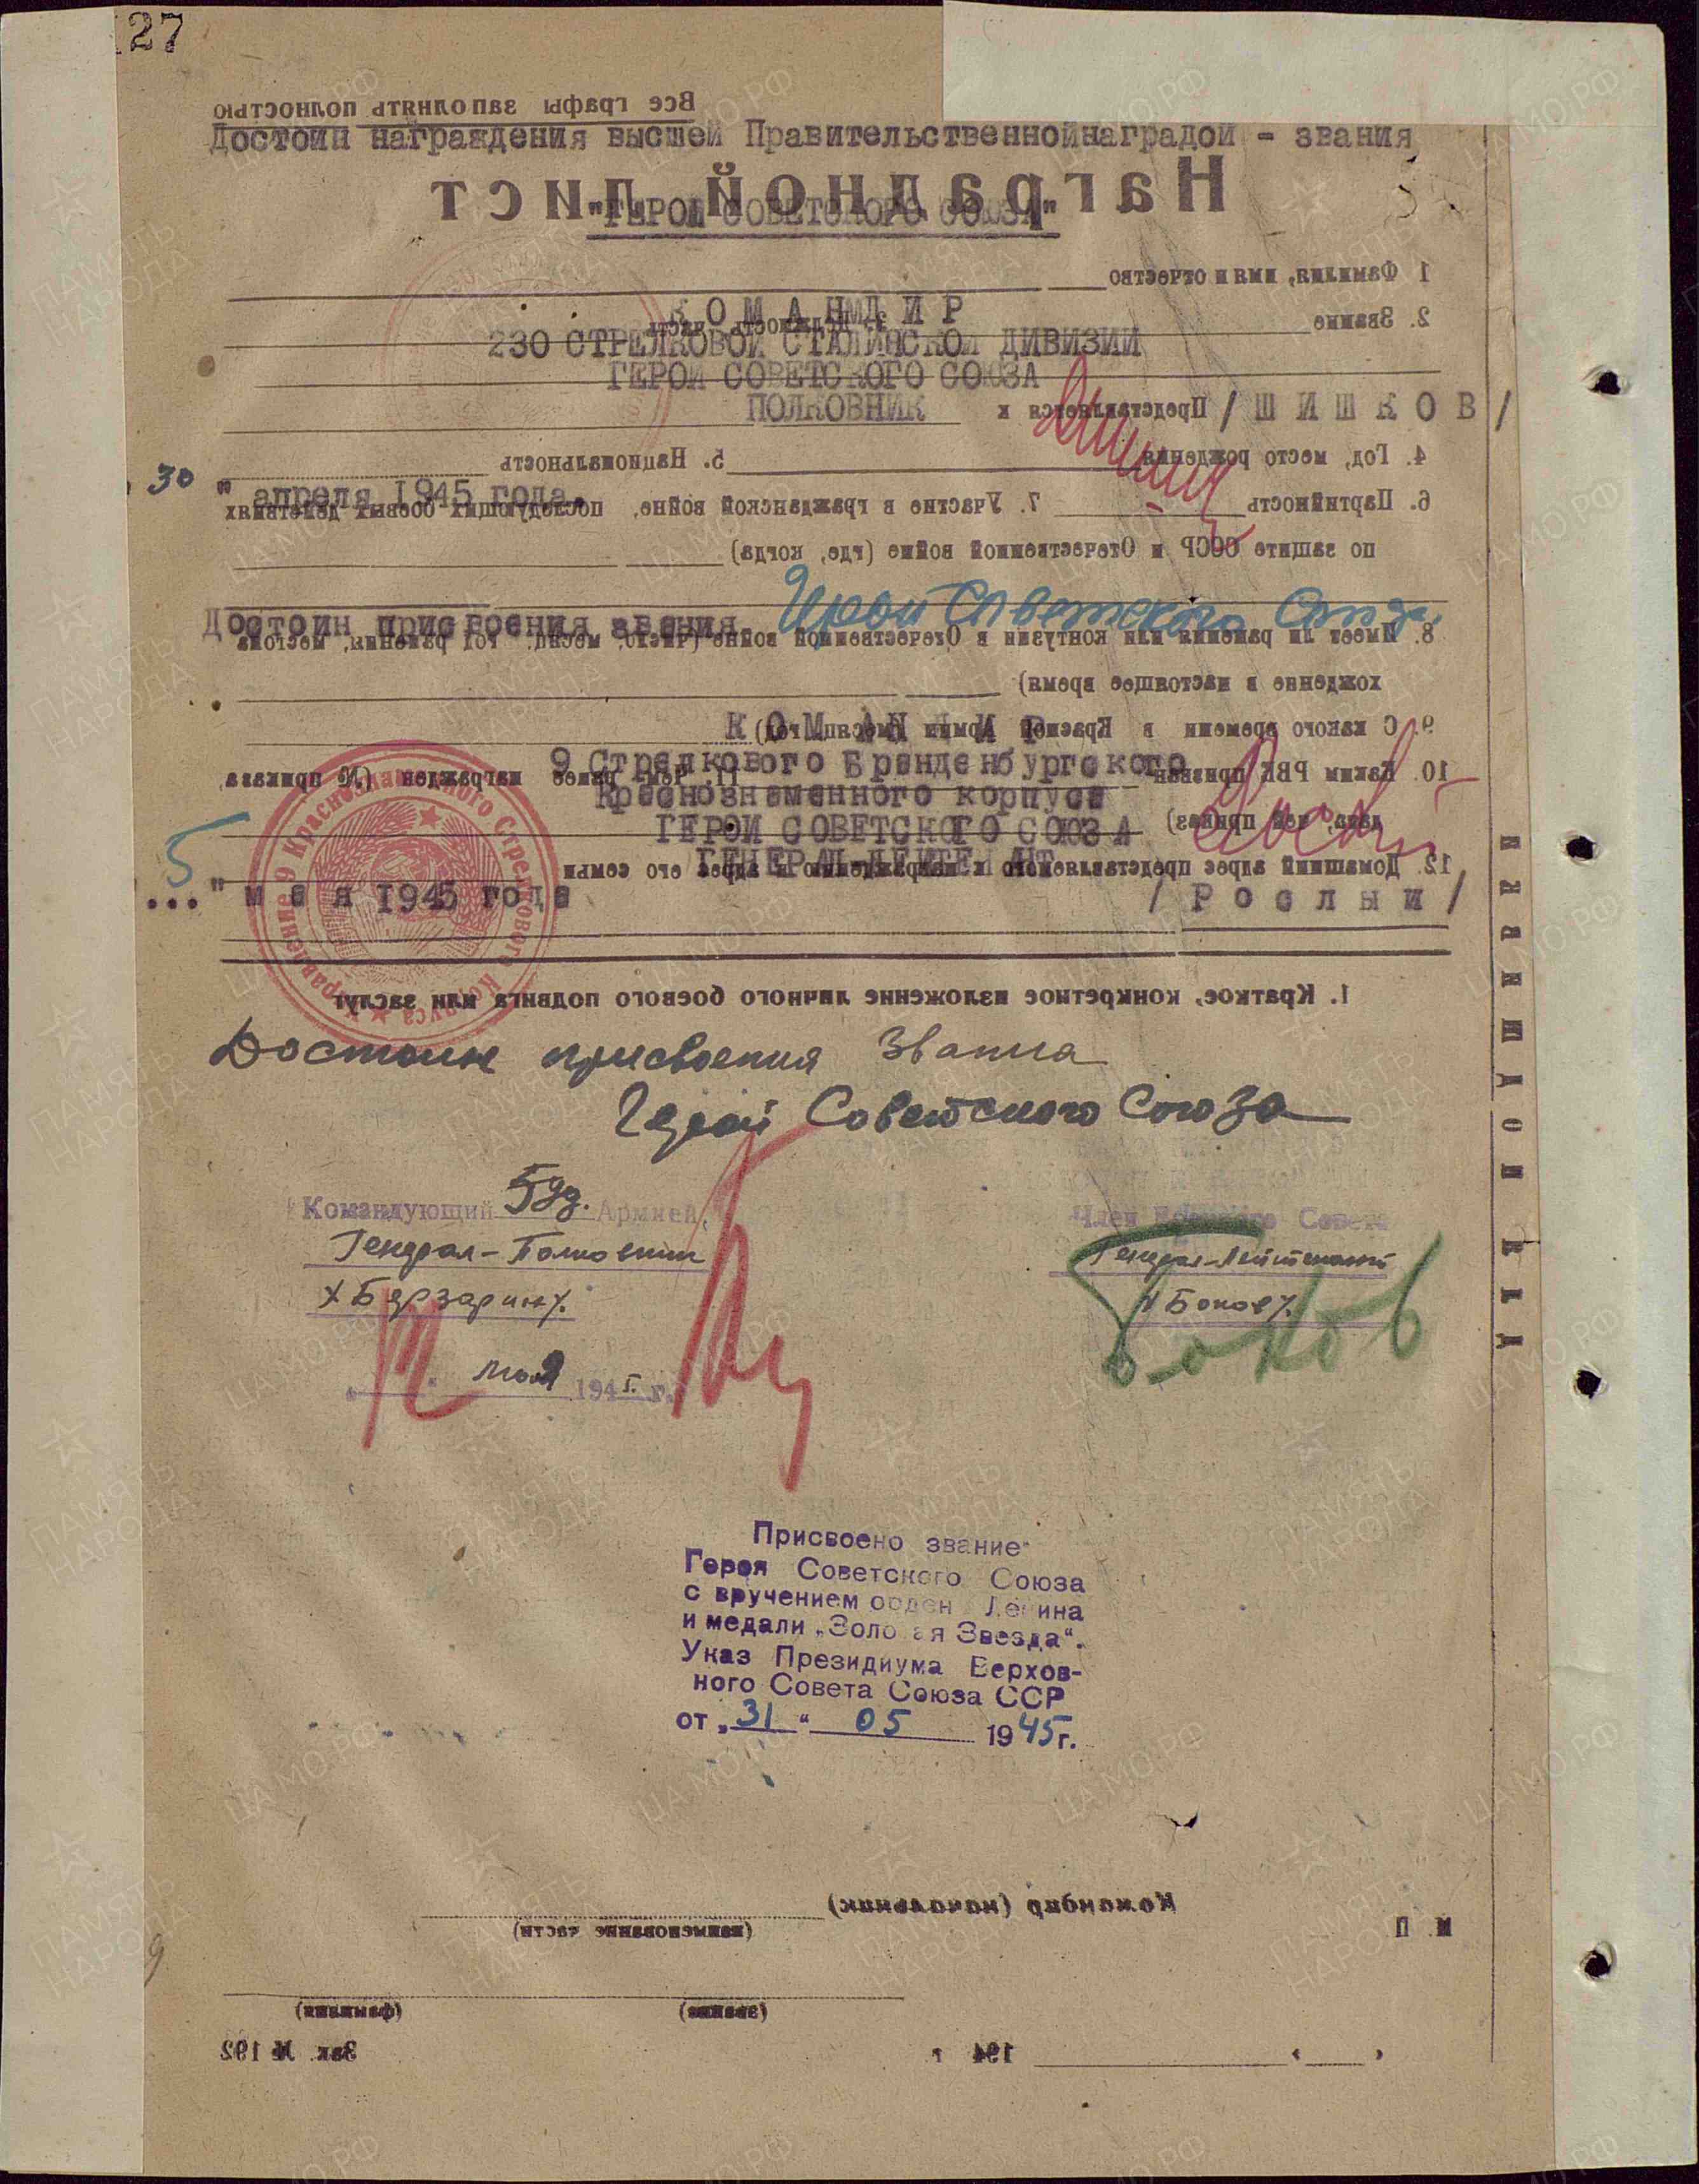 127
Все графы заполнять полностью
Достоин награждения высшей Правительственнойнаградой - звания
Наградной лист
"ГЕРОЙ СОВЕТСКОГО СОЮЗА"
1 Фамилия, имя и отчество
КОМАНДИР
2. Звание
3. Должность, часть
230 СТРЕЛКОВОЙ СТАЛИНСКОЙ ДИВИЗИИ
ГЕРОЙ СОВЕТСКОГО СОЮЗА
ПОЛКОВНИК
Представляется к
/ШИШКОВ/
4. Год, место рождения
5. Национальность
30 " апреля 1945 года.
6. Партийность
7. Участие в гражданской войне, последующих боевых действиях
по защите СССР и Отечественной войне (где, когда)
Достоин присвоения звания Герой Советского Союза.
8. Имеет ли ранения или контузии в Отечественной войне
хождение в настоящее время)
КОМАНДИР
9. С какого времени в Красной Армии
9 Стрелкового Бранденбургского
10. Каким РВК призван
11. Чем ранее награжден (№ приказа,
Краснознаменного корпуса
ГЕРОЙ СОВЕТСКОГО СОЮЗА
ГЕНЕРАЛ-ЛЕЙТЕНАНТ
12. Домашний адрес представляемого к награждению и адрес его семьи
5 " мая 1945 года
/Рослый/
Управление 9 Краснознаменного Стрелкового Корпуса
1. Краткое, конкретное изложение личного боевого подвига или заслуг
Достоин присвоения звания
Герой Советского Союза
Командующий 5 уд. Армией,
Генерал-Полковник
/Берзарин/.
мая 1945 г.
Член Военного Совета
Генерал-Лейтенант
/Боков/.
Боков
Присвоено звание
Героя Советского Союза
с вручением орден Ленина
и медали „Золотая Звезда“.
Указ Президиума Верхов-
ного Совета Союза ССР
от „31“ 05 1945г.
Командир (начальник)
(наименование части)
М П
(звание)
(фамилия)
194 г
Зак. № 192
ПАМЯТЬ НАРОДА
ЦАМО.РФ